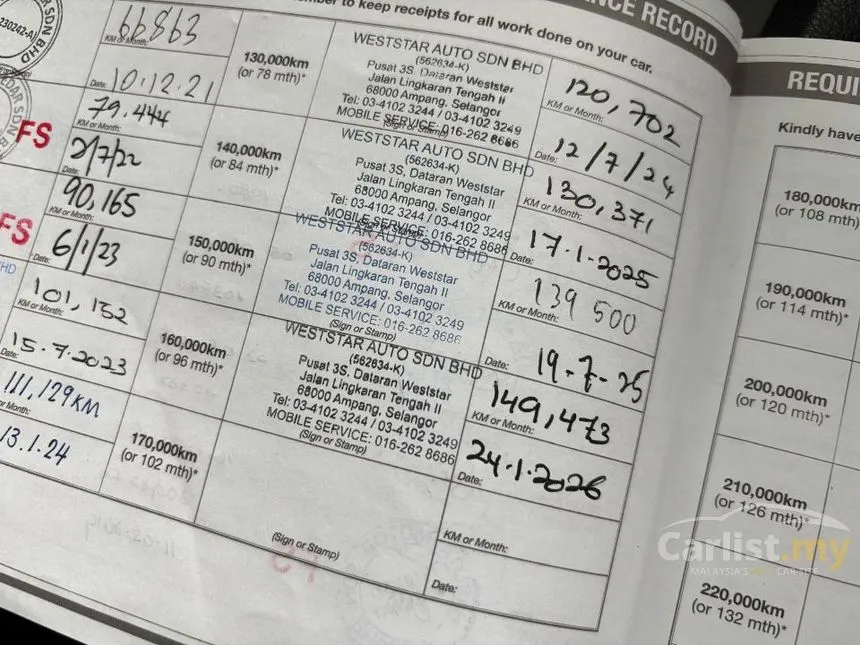 NCE RECORD
mber to keep receipts for all work done on your car.
230242-A
SDN BHD
66863
KM or Month:
10.12.21
Date:
79.444
KM or Month:
2/7/22
Date:
FS
90,165
KM or Month:
6/1/23
Date:
FS
HD
101,152
KM or Month:
15.7.2023
Date:
111,129KM
or Month:
13.1.24
130,000km
(or 78 mth)*
WESTSTAR AUTO SDN BHD
(562634-K)
Pusat 3S, Dataran Weststar
Jalan Lingkaran Tengah II
68000 Ampang, Selangor
Tel: 03-4102 3244 / 03-4102 3249
MOBILE SERVICE: 016-262 8686
(Sign or Stamp)
120,702
KM or Month:
12/7/24
Date:
140,000km
(or 84 mth)*
WESTSTAR AUTO SDN BHD
(562634-K)
Pusat 3S, Dataran Weststar
Jalan Lingkaran Tengah II
68000 Ampang, Selangor
Tel: 03-4102 3244 / 03-4102 3249
MOBILE SERVICE: 016-262 8686
(Sign or Stamp)
130,371
KM or Month:
17.1.2025
Date:
150,000km
(or 90 mth)*
WESTSTAR AUTO SDN BHD
(562634-K)
Pusat 3S, Dataran Weststar
Jalan Lingkaran Tengah II
68000 Ampang, Selangor
Tel: 03-4102 3244 / 03-4102 3249
MOBILE SERVICE: 016-262 8686
(Sign or Stamp)
139 500
KM or Month:
19-7-25
Date:
160,000km
(or 96 mth)*
WESTSTAR AUTO SDN BHD
(562634-K)
Pusat 3S, Dataran Weststar
Jalan Lingkaran Tengah II
68000 Ampang, Selangor
Tel: 03-4102 3244 / 03-4102 3249
MOBILE SERVICE: 016-262 8686
(Sign or Stamp)
149,473
KM or Month:
24.1.2026
Date:
170,000km
(or 102 mth)*
(Sign or Stamp)
KM or Month:
Date:
REQUI
Kindly have
180,000km
(or 108 mth)
190,000km
(or 114 mth)*
200,000km
(or 120 mth)*
210,000km
(or 126 mth)*
220,000km
(or 132 mth)*
Carlist.my
MALAYSIA'S CAR SITE